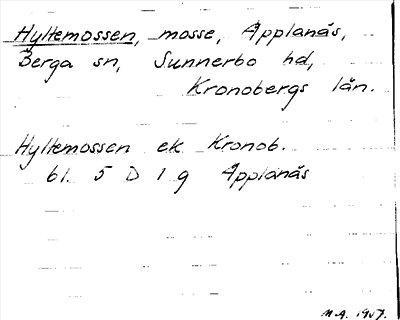 Hyltemossen, mosse, Äpplanäs,
Berga sn, Sunnerbo hd,
Kronobergs län.
Hyltemossen ek Kronob.
bl. 5 D 1 g Äpplanäs
M.A. 1947.